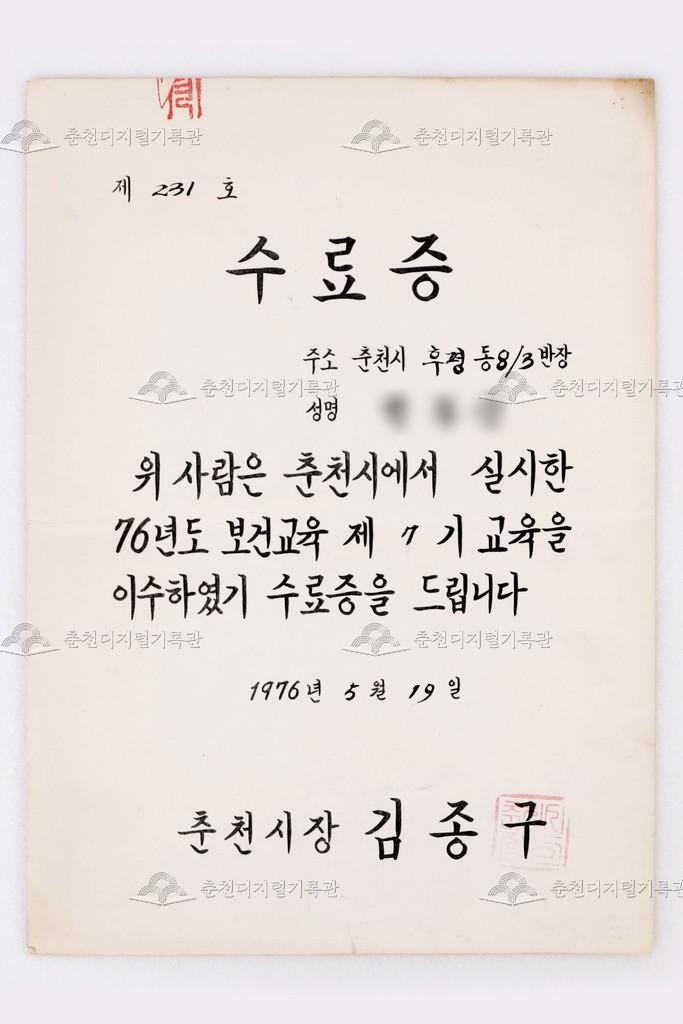 제 231 호
수료증
주소 춘천시 후평동8/3반장
성명
위 사람은 춘천시에서 실시한
76년도 보건교육 제 7 기 교육을
이수하였기 수료증을 드립니다
1976년 5월 19일
춘천시장 김종구
춘천디지털기록관 춘천디지털기록관
춘천디지털기록관 춘천디지털기록관
춘천디지털기록관 춘천디지털기록관
춘천디지털기록관 춘천디지털기록관